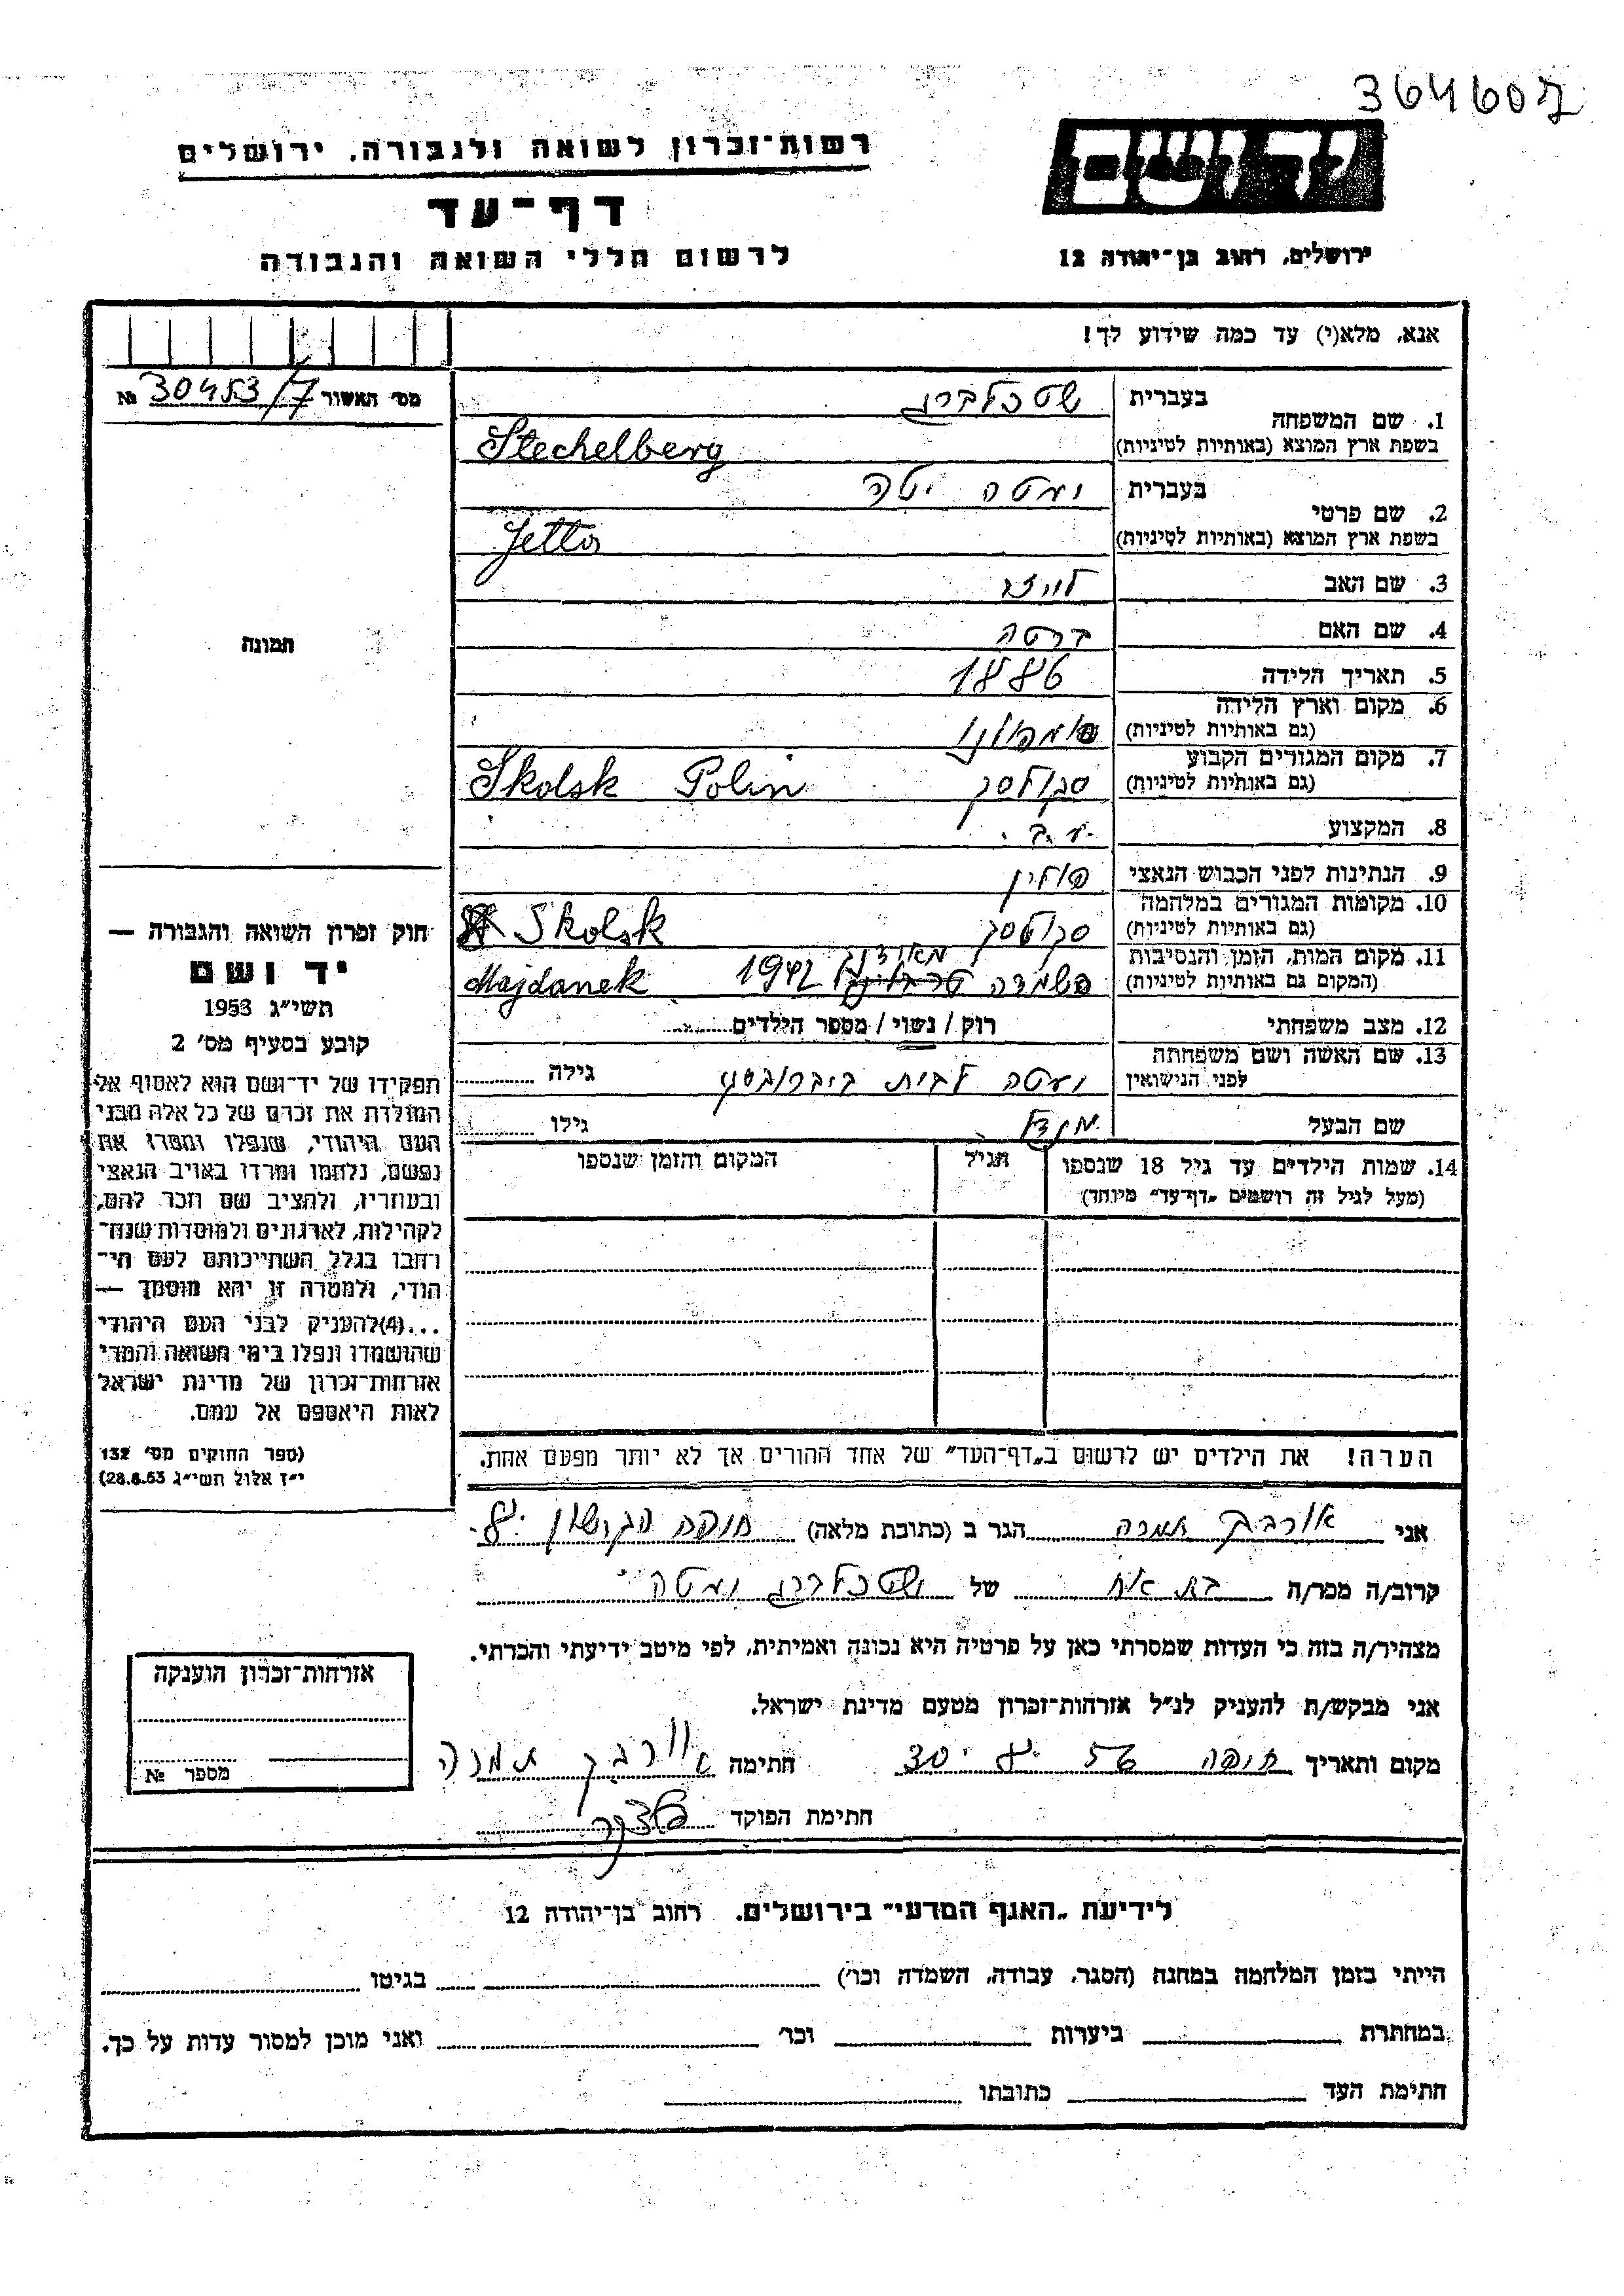 3646607
רשות־זכרון לשואה ולגבורה, ירושלים
דף־עד
לרשום חללי השואה והגבורה
יד ושם
ירושלים, רחוב בן־יהודה 12
אנא, מלא(י) עד כמה שידוע לך!
מס׳ האשור 30453/7 №
1. שם המשפחה
בעברית שטכלברג
בשפת ארץ המוצא (באותיות לטיניות) Stechelberg
2. שם פרטי
בעברית יטה
בשפת ארץ המוצא (באותיות לטיניות) Jetta
3. שם האב
4. שם האם ברטה
5. תאריך הלידה 1886
6. מקום וארץ הלידה
(גם באותיות לטיניות)
7. מקום המגורים הקבוע
(גם באותיות לטיניות) סקולסק Skolsk Polin
8. המקצוע
9. הנתינות לפני הכבוש הנאצי פולין
10. מקומות המגורים במלחמה
(גם באותיות לטיניות) סקולסק Skolsk
11. מקום המות, הזמן והנסיבות
(המקום גם באותיות לטיניות) השמדה 1942 Majdanek
12. מצב משפחתי רוק / נשוי / מספר הילדים
13. שם האשה ושם משפחתה
לפני הנישואין לבית גילה
שם הבעל גילו
14. שמות הילדים עד גיל 18 שנספו
(מעל לגיל זה רושמים „דף־עד״ מיוחד)
הגיל
המקום והזמן שנספו
הערה! את הילדים יש לרשום ב„דף־העד״ של אחד ההורים אך לא יותר מפעם אחת.
תמונה
חוק זכרון השואה והגבורה —
יד ושם
תשי״ג 1953
קובע בסעיף מס׳ 2
תפקידו של יד־ושם הוא לאסוף אל
המולדת את זכרם של כל אלה מבני
העם היהודי, שנפלו ומסרו את
נפשם, נלחמו ומרדו באויב הנאצי
ובעוזריו, ולהציב שם וזכר להם,
לקהילות, לארגונים ולמוסדות שנח־
רחבו בגלל השתייכותם לעם הי־
הודי, ולמטרה זו יהא מוסמך —
...(4)להעניק לבני העם היהודי
שהושמדו ונפלו בימי השואה והמרי
אזרחות־זכרון של מדינת ישראל
לאות היאספם אל עמם.
(ספר החוקים מס׳ 132
י״ז אלול תשי״ג 28.8.53)
אני אורבך תמרה הגר ב (כתובת מלאה)
קרוב/ה מכר/ה בת אח של שטכלברג
מצהיר/ה בזה כי העדות שמסרתי כאן על פרטיה היא נכונה ואמיתית, לפי מיטב ידיעתי והכרתי.
אני מבקש/ת להעניק לנ״ל אזרחות־זכרון מטעם מדינת ישראל.
מקום ותאריך חיפה 56 חתימה אורבך תמרה
חתימת הפוקד
אזרחות־זכרון הוענקה
מספר №
לידיעת „האגף המדעי״ בירושלים. רחוב בן־יהודה 12
הייתי בזמן המלחמה במחנה (הסגר, עבודה, השמדה וכר׳) בגיטו
במחתרת ביערות וכר׳ ואני מוכן למסור עדות על כך.
חתימת העד כתובתו